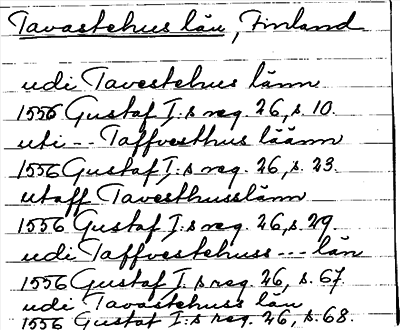 Tavastehus län, Finland
udi Tavestehus länn
1556 Gustaf I:s reg. 26, s. 10.
uti -- Taffvesthus läänn
1556 Gustaf I:s reg. 26, s. 23.
utaff Tavesthusslänn
1556 Gustaf I:s reg. 26, s. 29.
udi Taffvestehuss --- län
1556 Gustaf I:s reg. 26, s. 67.
udi Tavastehuss län
1556 Gustaf I:s reg. 26, s. 68.